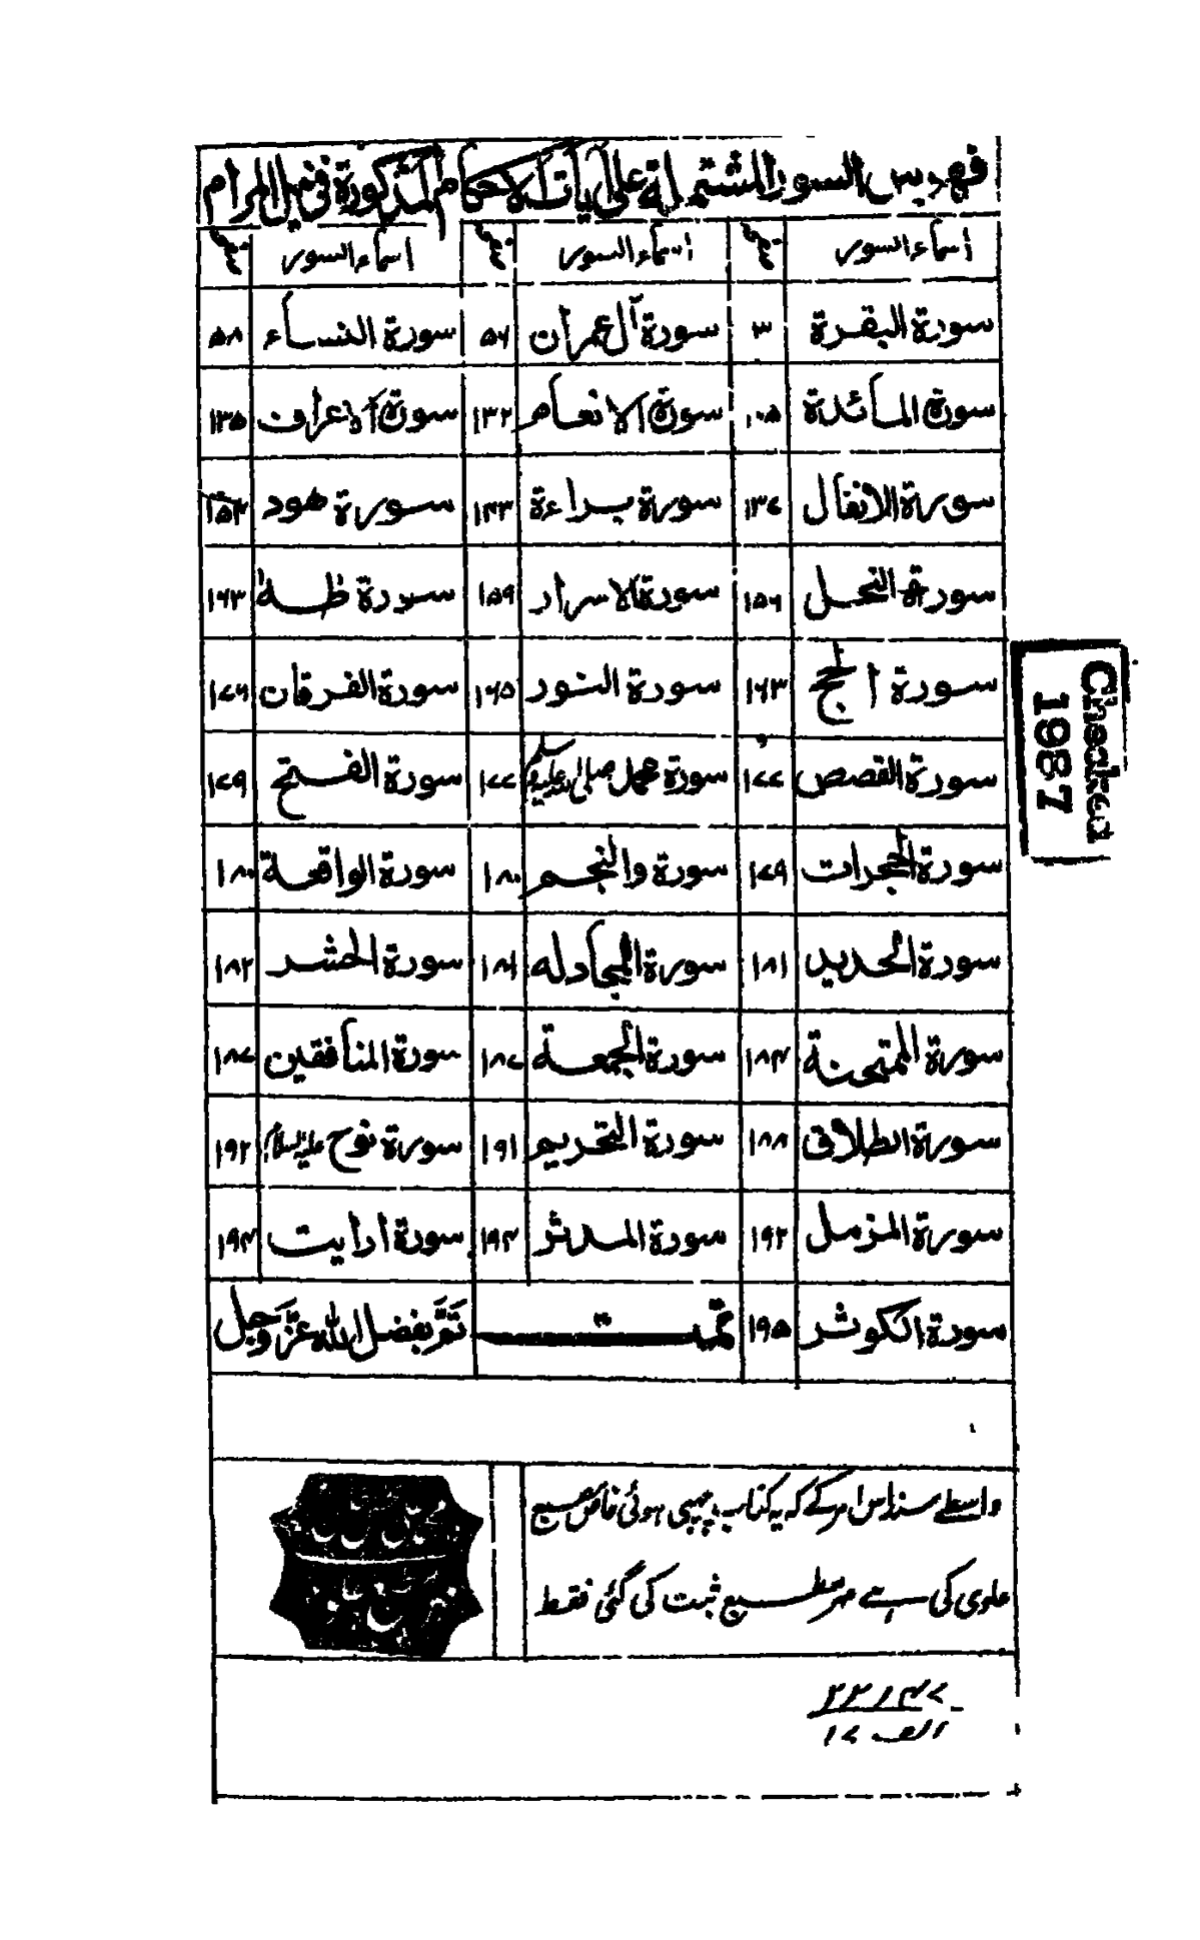 فهرس السور المشتملة على آيات الاحكام المذكورة في نيل المرام
اسماء السور صفحه اسماء السور صفحه اسماء السور صفحه
سورة البقرة ٣ سورة آل عمران ٥٦ سورة النساء ٥٨
سورة المائدة ١٠٥ سورة الانعام ١٣٢ سورة الاعراف ١٣٥
سورة الانفال ١٣٧ سورة براءة ١٤٣ سورة هود ١٥٤
سورة النحل ١٥٦ سورة الاسراء ١٥٩ سورة طه ١٦٣
سورة الحج ١٦٣ سورة النور ١٦٥ سورة الفرقان ١٧٦
سورة القصص ١٧٧ سورة محمد صلى الله عليه وسلم ١٧٧ سورة الفتح ١٧٩
سورة الحجرات ١٧٩ سورة والنجم ١٨٠ سورة الواقعة ١٨٠
سورة الحديد ١٨١ سورة المجادله ١٨١ سورة الحشر ١٨٢
سورة الممتحنة ١٨٤ سورة الجمعة ١٨٧ سورة المنافقين ١٨٧
سورة الطلاق ١٨٨ سورة التحريم ١٩١ سورة نوح عليه السلام ١٩٢
سورة المزمل ١٩٢ سورة المدثر ١٩٤ سورة ارايت ١٩٤
سورة الكوثر ١٩٥ تمت تَمَّ بفضل الله عَزَّ وَجل
واسطے سند اس امر کے کہ یہ کتاب چھپی ہوئی خاص مطبع
علوی کی ہے مہر مطبع ثبت کی گئی فقط
٢٢١٤٧
الف ١٧
Checked
1987